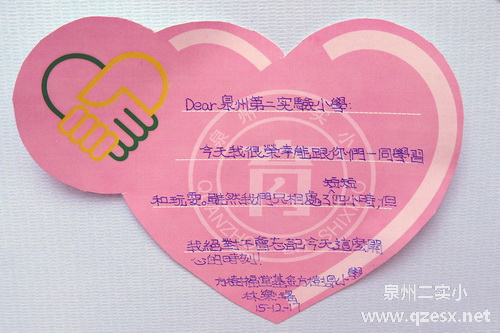 Dear 泉州第二实驗小學:
今天我很榮幸能跟你們一同學習
短短
和玩耍。雖然我們只相處了四小時,但
我絕對不會忘記今天這麼開
心的時刻!
方樹福堂基金方樹泉小學
林樂瑤
15-12-17
泉州二实小
www.qzesx.net